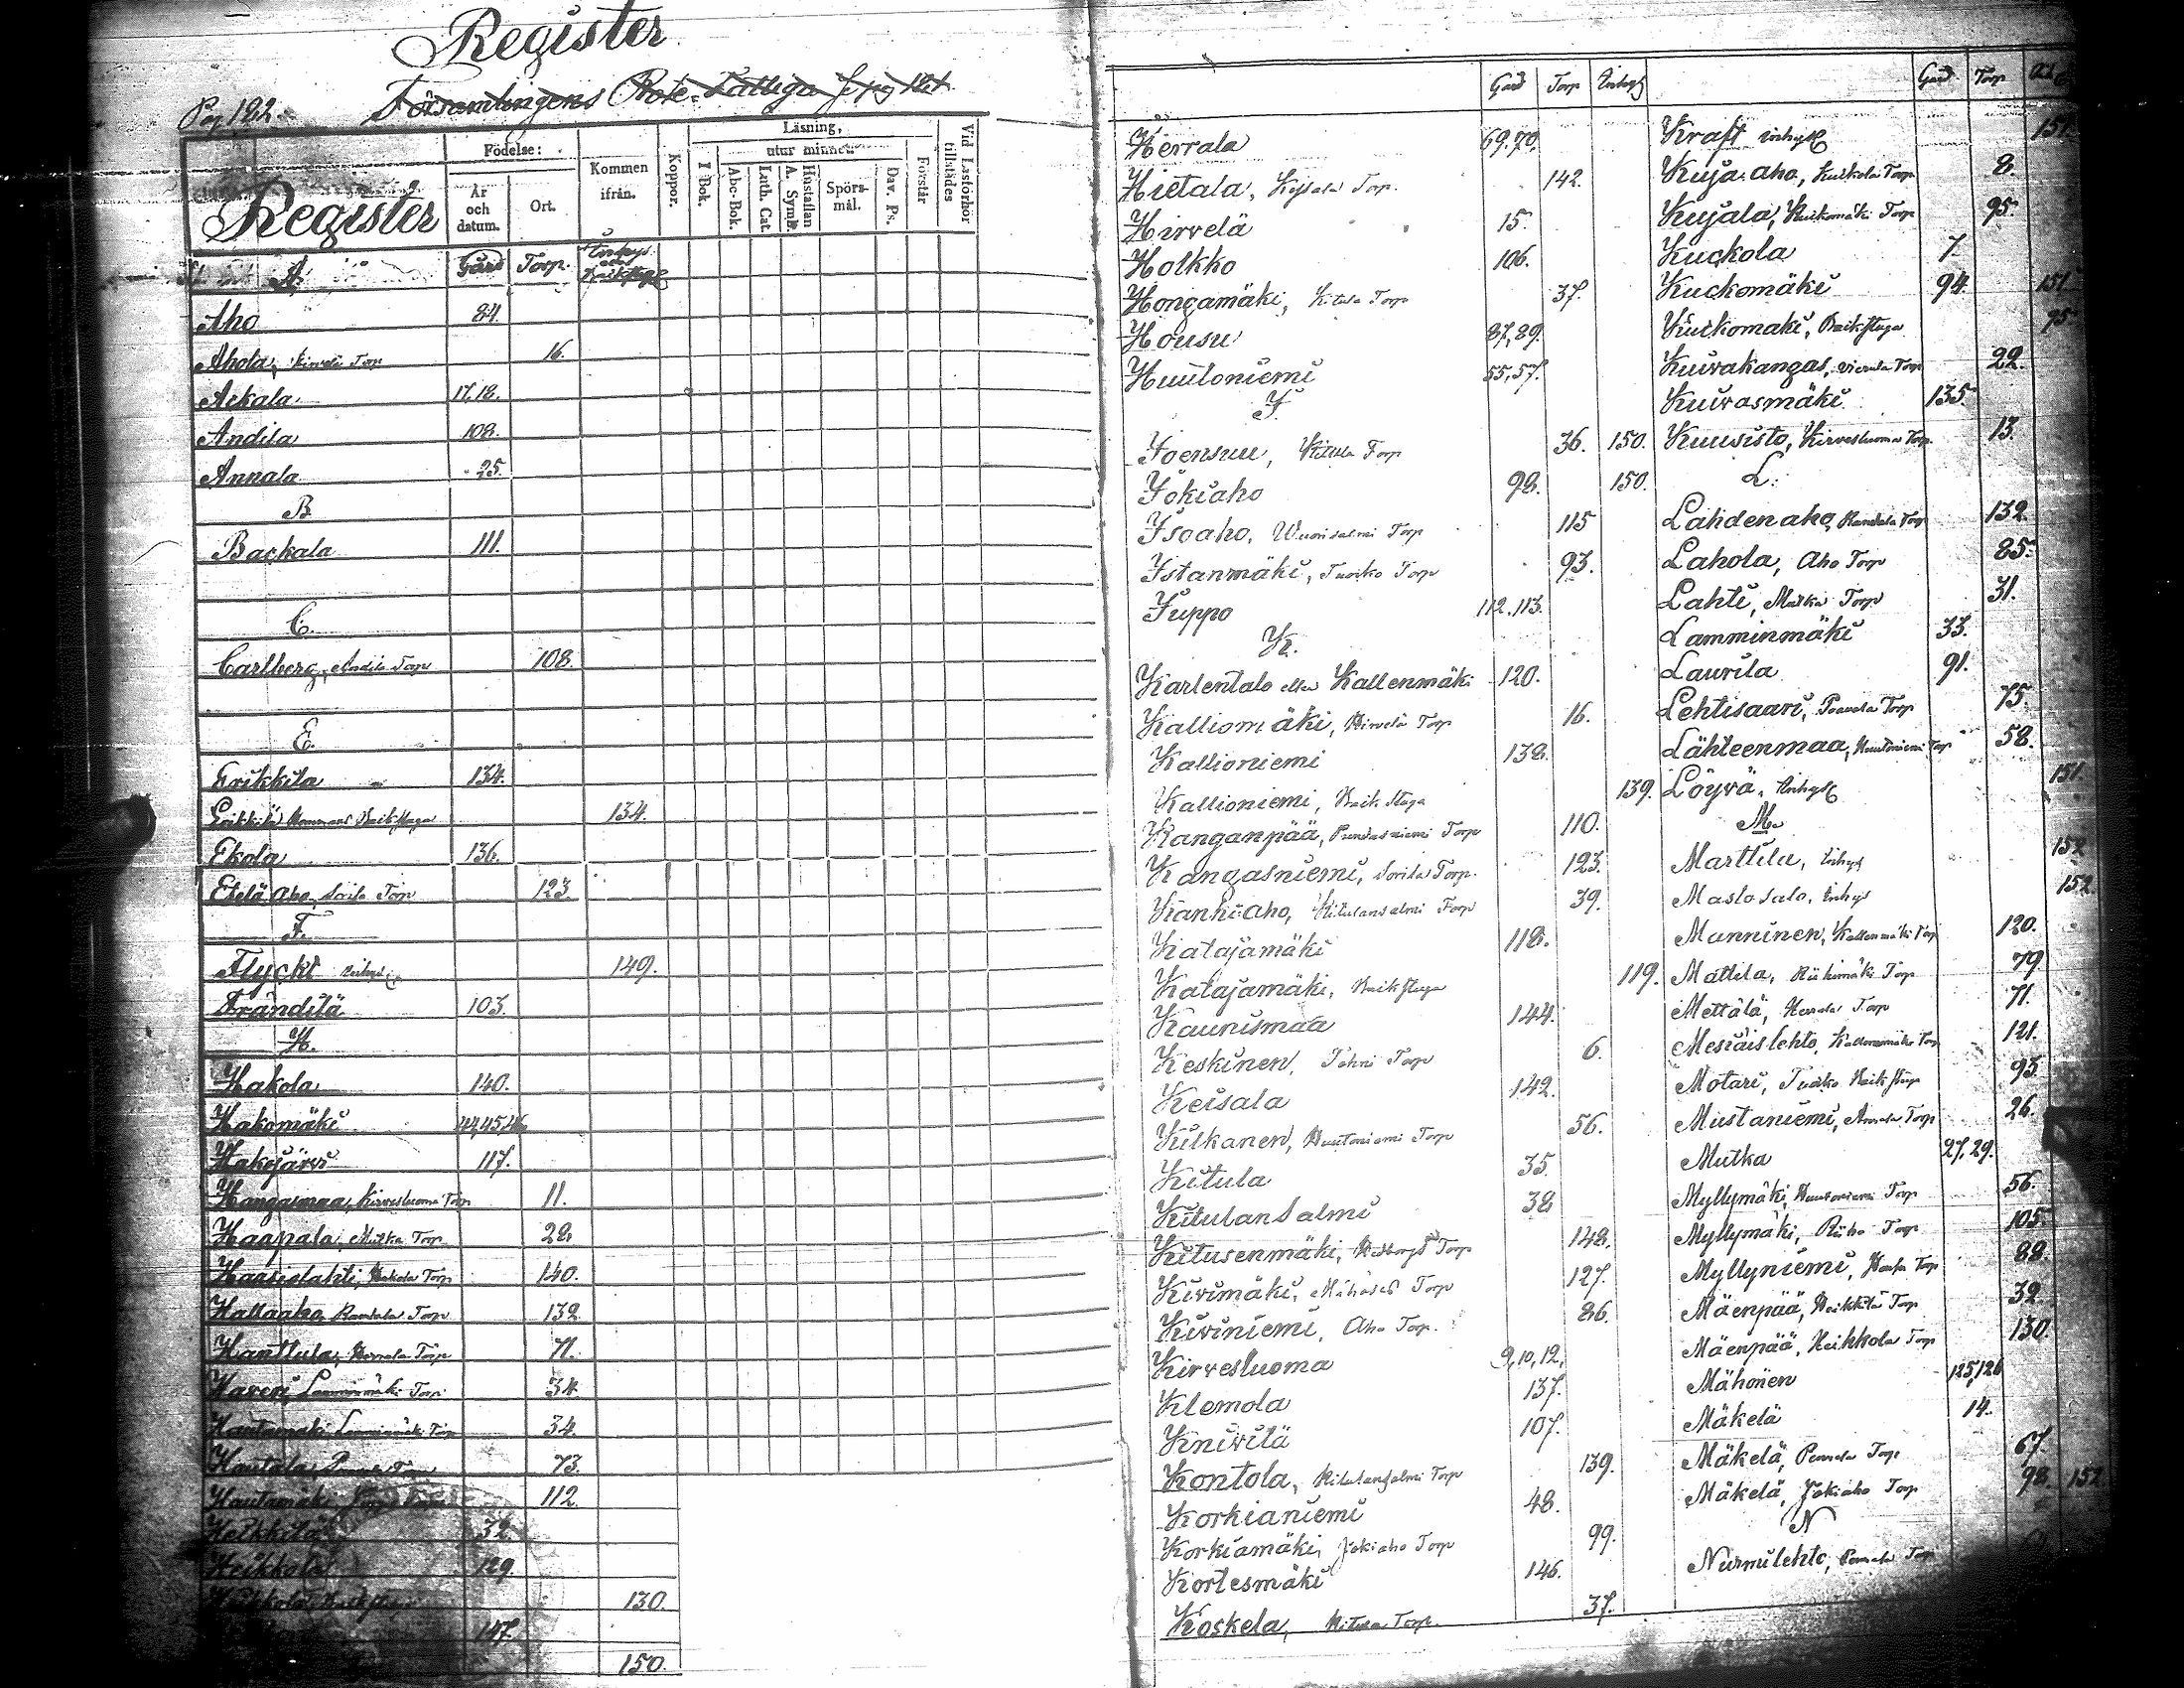 Register
Pag 182. Församlingens Rote Fattiga
Register
Födelse:
År och datum.
Ort.
Kommen ifrån.
Koppor.
Läsning,
utur minnet.
I Bok.
Abc-Bok.
Luth. Cat.
A. Symb.
Hustaflan
Spörsmål.
Dav. Ps.
Förstår
Vid Läsförhör tillstädes
A. Gård Torp. Inhys och Backstuga
Aho 84.
Ahola, Hirvelä Torp 16.
Aikala 17,18.
Andila 108.
Annala 25.
B
Backala 111.
C.
Carlberg, Andila Torp 108.
E.
Erikkila 134.
Erikkilä Backstuga 134.
Ekola 136.
Etelä Aho, Sorila Torp 123.
F.
Flyckt Inhys 149.
Frändilä 103.
H.
Hakola 140.
Hakomäki 44,45,46
Hakojärvi 117.
Hangasmaa, Kirvesluoma Torp 11.
Haapala, Mutka Torp 28.
Haapalahti, Hakola Torp 140.
Hallaaho, Randala Torp 132.
Hanttula, Herrala Torp 71.
Haveri, Lamminmäki Torp 34.
Hautamäki, Lamminmäki Torp 34.
Hautala, Torp 73.
Hautamäki, Juppo Torp 112.
Heikkilä 32
Heikkola 129.
Heikkola, Backstuga 130.
147.
150.
Gård Torp Inhys
Herrala 69.70.
Hietala, Keisala Torp. 142.
Hirvelä 15.
Holkko 106.
Hongamäki, Kitula Torp 37.
Housu 87,89.
Huutoniemi 55,57.
J.
Joensuu, Kitula Torp 36. 150.
Jokiaho 98. 150.
Isoaho, Wuorisalmi Torp 115
Istanmäki, Tuoriko Torp 93.
Juppo 112.113.
K.
Karlentalo eller Kallenmäki 120.
Kalliomäki, Hirvelä Torp 16.
Kallioniemi 138.
Kallioniemi, Backstuga 139.
Kanganpää, Pundarniemi Torp 110.
Kangasniemi, Sorila Torp. 123.
Kankiaho, Kitulansalmi Torp 39.
Katajamäki 118.
Katajamäki, Backstuga 119.
Kaunismaa 144.
Keskinen, Torp 6.
Keisala 142.
Kulkanen, Huutoniemi Torp 56.
Kitula 35.
Kitulansalmi 38
Kitusenmäki, Torp 148.
Kivimäki, Mähönen Torp 127.
Kiviniemi, Aho Torp. 86.
Kirvesluoma 9,10,12,
Klemola 137.
Knivilä 107.
Kontola, Kitulansalmi Torp 139.
Korkianiemi 48.
Korkiamäki, Jokiaho Torp 99.
Kortesmäki 146.
Koskela, Kitula Torp. 37.
Gård Torp
Kraft Inhys 151.
Kuja-aho, Kuckola Torp 8.
Kujala, Kuckomäki Torp 95.
Kuckola 7.
Kuckomäki 94. 151.
Kuckomäki, Backstuga 95
Kuivakangas, Torp 22.
Kuivasmäki 135.
Kuusisto, Kirvesluoma Torp. 13.
L.
Lahdenaho, Randala Torp 132.
Lahola, Aho Torp 85.
Lahti, Mutka Torp 31.
Lamminmäki 33.
Laurila 91.
Lehtisaari, Torp 75.
Lähteenmaa, Huutoniemi Torp 58.
Löyvä, Inhys 151.
M.
Marttila, Inhys 152
Maslosalo, Inhys 152.
Manninen, Kallenmäki Torp 120.
Mattila, Riihimäki Torp 79
Mettälä, Herrala Torp 71.
Mesiäislehto, Kallenmäki Torp 121.
Motari, Tuoriko Backstuga 93.
Mustaniemi, Annala Torp 26.
Mutka 27,29.
Myllymäki, Huutoniemi Torp 56.
Myllymäki, Riiho Torp 105.
Myllyniemi, Housu Torp 88.
Mäenpää, Heikkilä Torp 32.
Mäenpää, Heikkola Torp 130.
Mähönen 125,126
Mäkelä 14.
Mäkelä, Torp 67.
Mäkelä, Jokiaho Torp 98. 152.
N
Nurmilehto, Torp